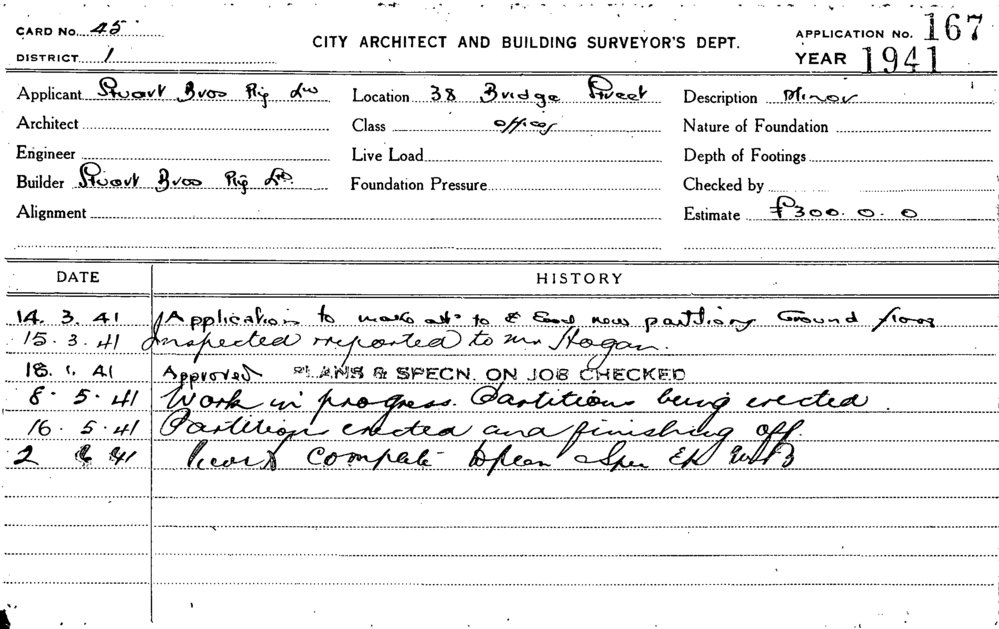 CARD No. 45
DISTRICT 1
CITY ARCHITECT AND BUILDING SURVEYOR'S DEPT.
APPLICATION No. 167
YEAR 1941
Applicant Stuart Bros Pty Ltd Location 38 Bridge Street Description Minor
Architect Class offices Nature of Foundation
Engineer Live Load Depth of Footings
Builder Stuart Bros Pty Ltd. Foundation Pressure Checked by
Alignment Estimate £300.0.0
DATE HISTORY
14.3.41 Application to make alts to & new partitions Ground floor
15.3.41 Inspected reported to Mr Hogan.
18.1.41 Approved PLANS & SPECN. ON JOB CHECKED
8.5.41 Work in progress. Partitions being erected.
16.5.41 Partitions erected and finishing off.
2 6 41 Work Complete